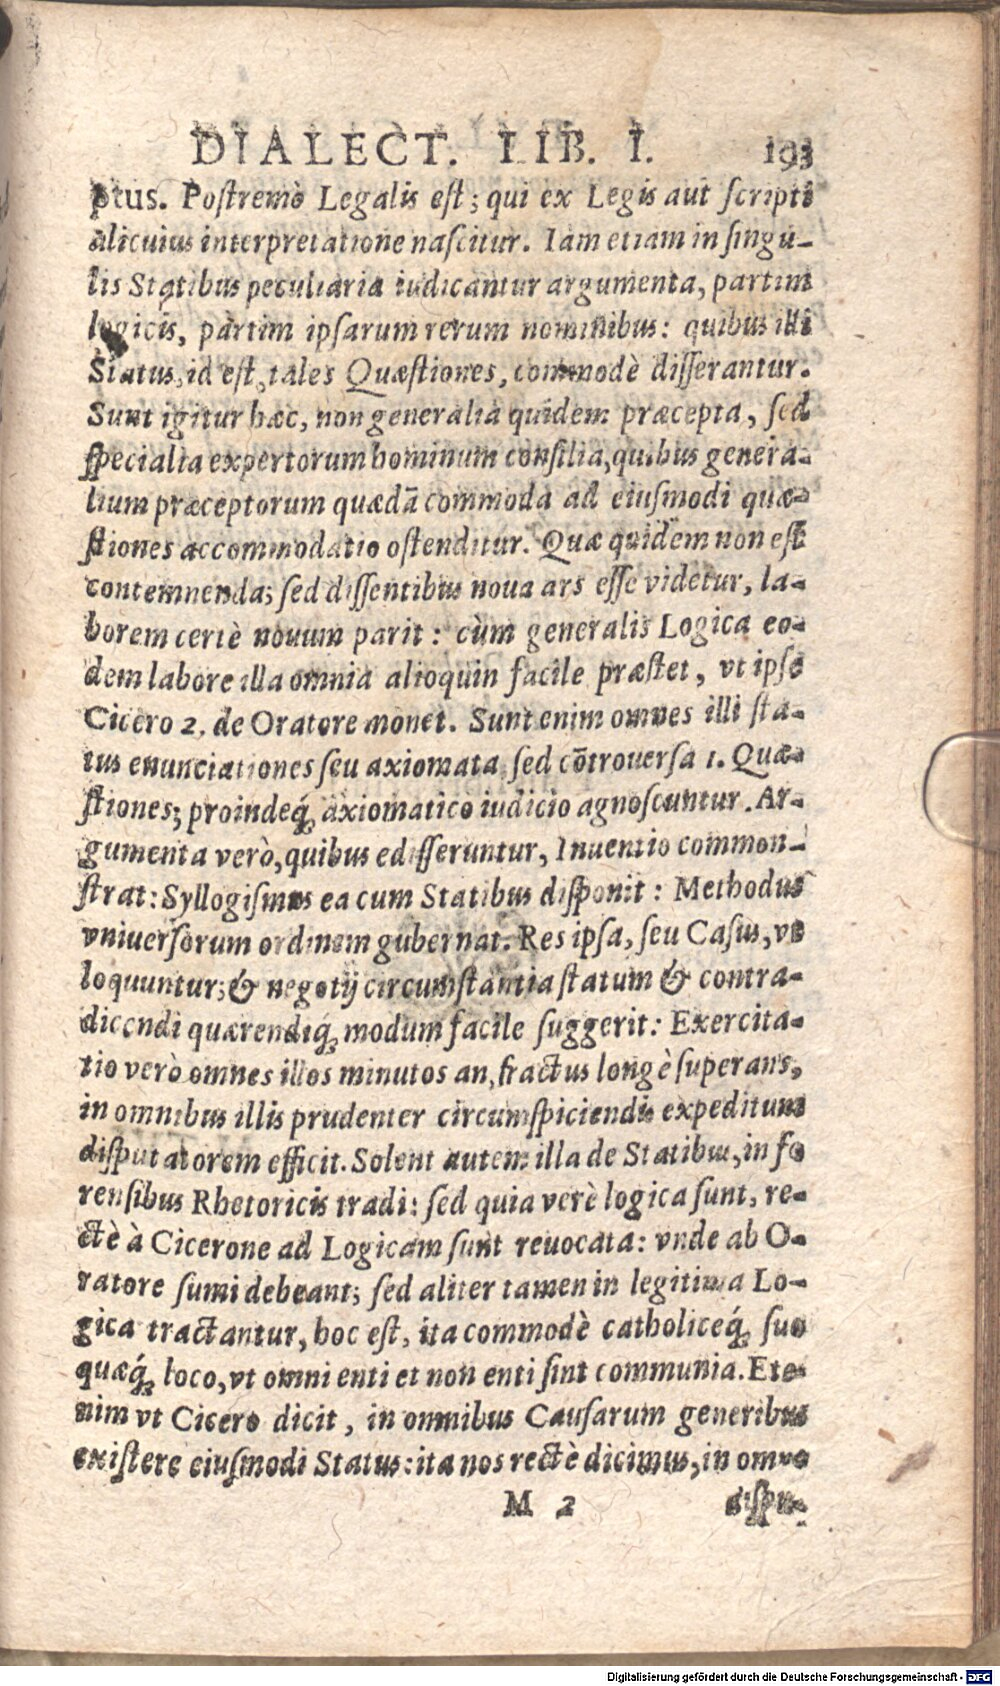 DIALECT. LIB. I. 193
ptus. Postremò Legalis est; qui ex Legis aut scripti
alicuius interpretatione nascitur. Iam etiam in singu-
lis Statibus peculiaria iudicantur argumenta, partim
logicis, partim ipsarum rerum nominibus: quibus illi
Status, id est, tales Quæstiones, commodè disserantur.
Sunt igitur hæc, non generalia quidem præcepta, sed
specialia expertorum hominum consilia, quibus genera-
lium præceptorum quædā commoda ad eiusmodi quæ-
stiones accommodatio ostenditur. Quæ quidem non est
contemnenda; sed dissentibus noua ars esse videtur, la-
borem certè nouum parit: cùm generalis Logica eo-
dem labore illa omnia alioquin facile præstet, vt ipse
Cicero 2. de Oratore monet. Sunt enim omnes illi sta-
tus enunciationes seu axiomata, sed cōtrouersa 1. Quæ-
stiones; proindeq́; axiomatico iudicio agnoscuntur. Ar-
gumenta verò, quibus edisseruntur, Inuentio common-
strat: Syllogismus ea cum Statibus disponit: Methodus
vniuersorum ordinem gubernat. Res ipsa, seu Casus, vt
loquuntur; & negotij circumstantia statum & contra-
dicendi quærendiq́; modum facile suggerit: Exercita-
tio verò omnes illos minutos anfractus longè superans,
in omnibus illis prudenter circumspiciendis expeditum
disputatorem efficit. Solent autem illa de Statibus, in fo
rensibus Rhetoricis tradi: sed quia verè logica sunt, re-
ctè à Cicerone ad Logicam sunt reuocata: vnde ab O-
ratore sumi debeant; sed aliter tamen in legitima Lo-
gica tractantur, hoc est, ita commodè catholiceq́; suo
quæq́; loco, vt omni enti et non enti sint communia. Ete-
nim vt Cicero dicit, in omnibus Causarum generibus
existere eiusmodi Status: ita nos rectè dicimus, in omne
M 2 dispu-
Digitalisierung gefördert durch die Deutsche Forschungsgemeinschaft - DFG